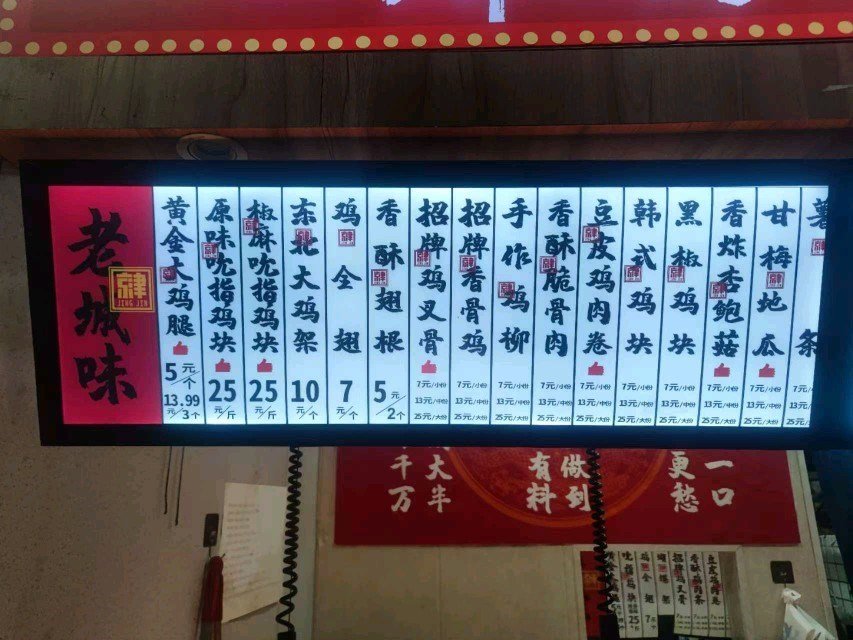 老城味
津京
JING JIN
黄金大鸡腿
5元/个
13.99元/3个
原味吮指鸡块
25元/斤
椒麻吮指鸡块
25元/斤
东北大鸡架
10元/个
鸡全翅
7元/个
香酥翅根
5元/2个
招牌鸡叉骨
7元/小份
13元/中份
25元/大份
招牌香骨鸡
7元/小份
13元/中份
25元/大份
手作鸡柳
7元/小份
13元/中份
25元/大份
香酥脆骨肉
7元/小份
13元/中份
25元/大份
豆皮鸡肉卷
7元/小份
13元/中份
25元/大份
韩式鸡块
7元/小份
13元/中份
25元/大份
黑椒鸡块
7元/小份
13元/中份
25元/大份
香炸杏鲍菇
7元/小份
13元/中份
25元/大份
甘梅地瓜
7元/小份
13元/中份
25元/大份
薯条
7元/
13元/
25元/
千万
大半
有料
做到
更愁
一口